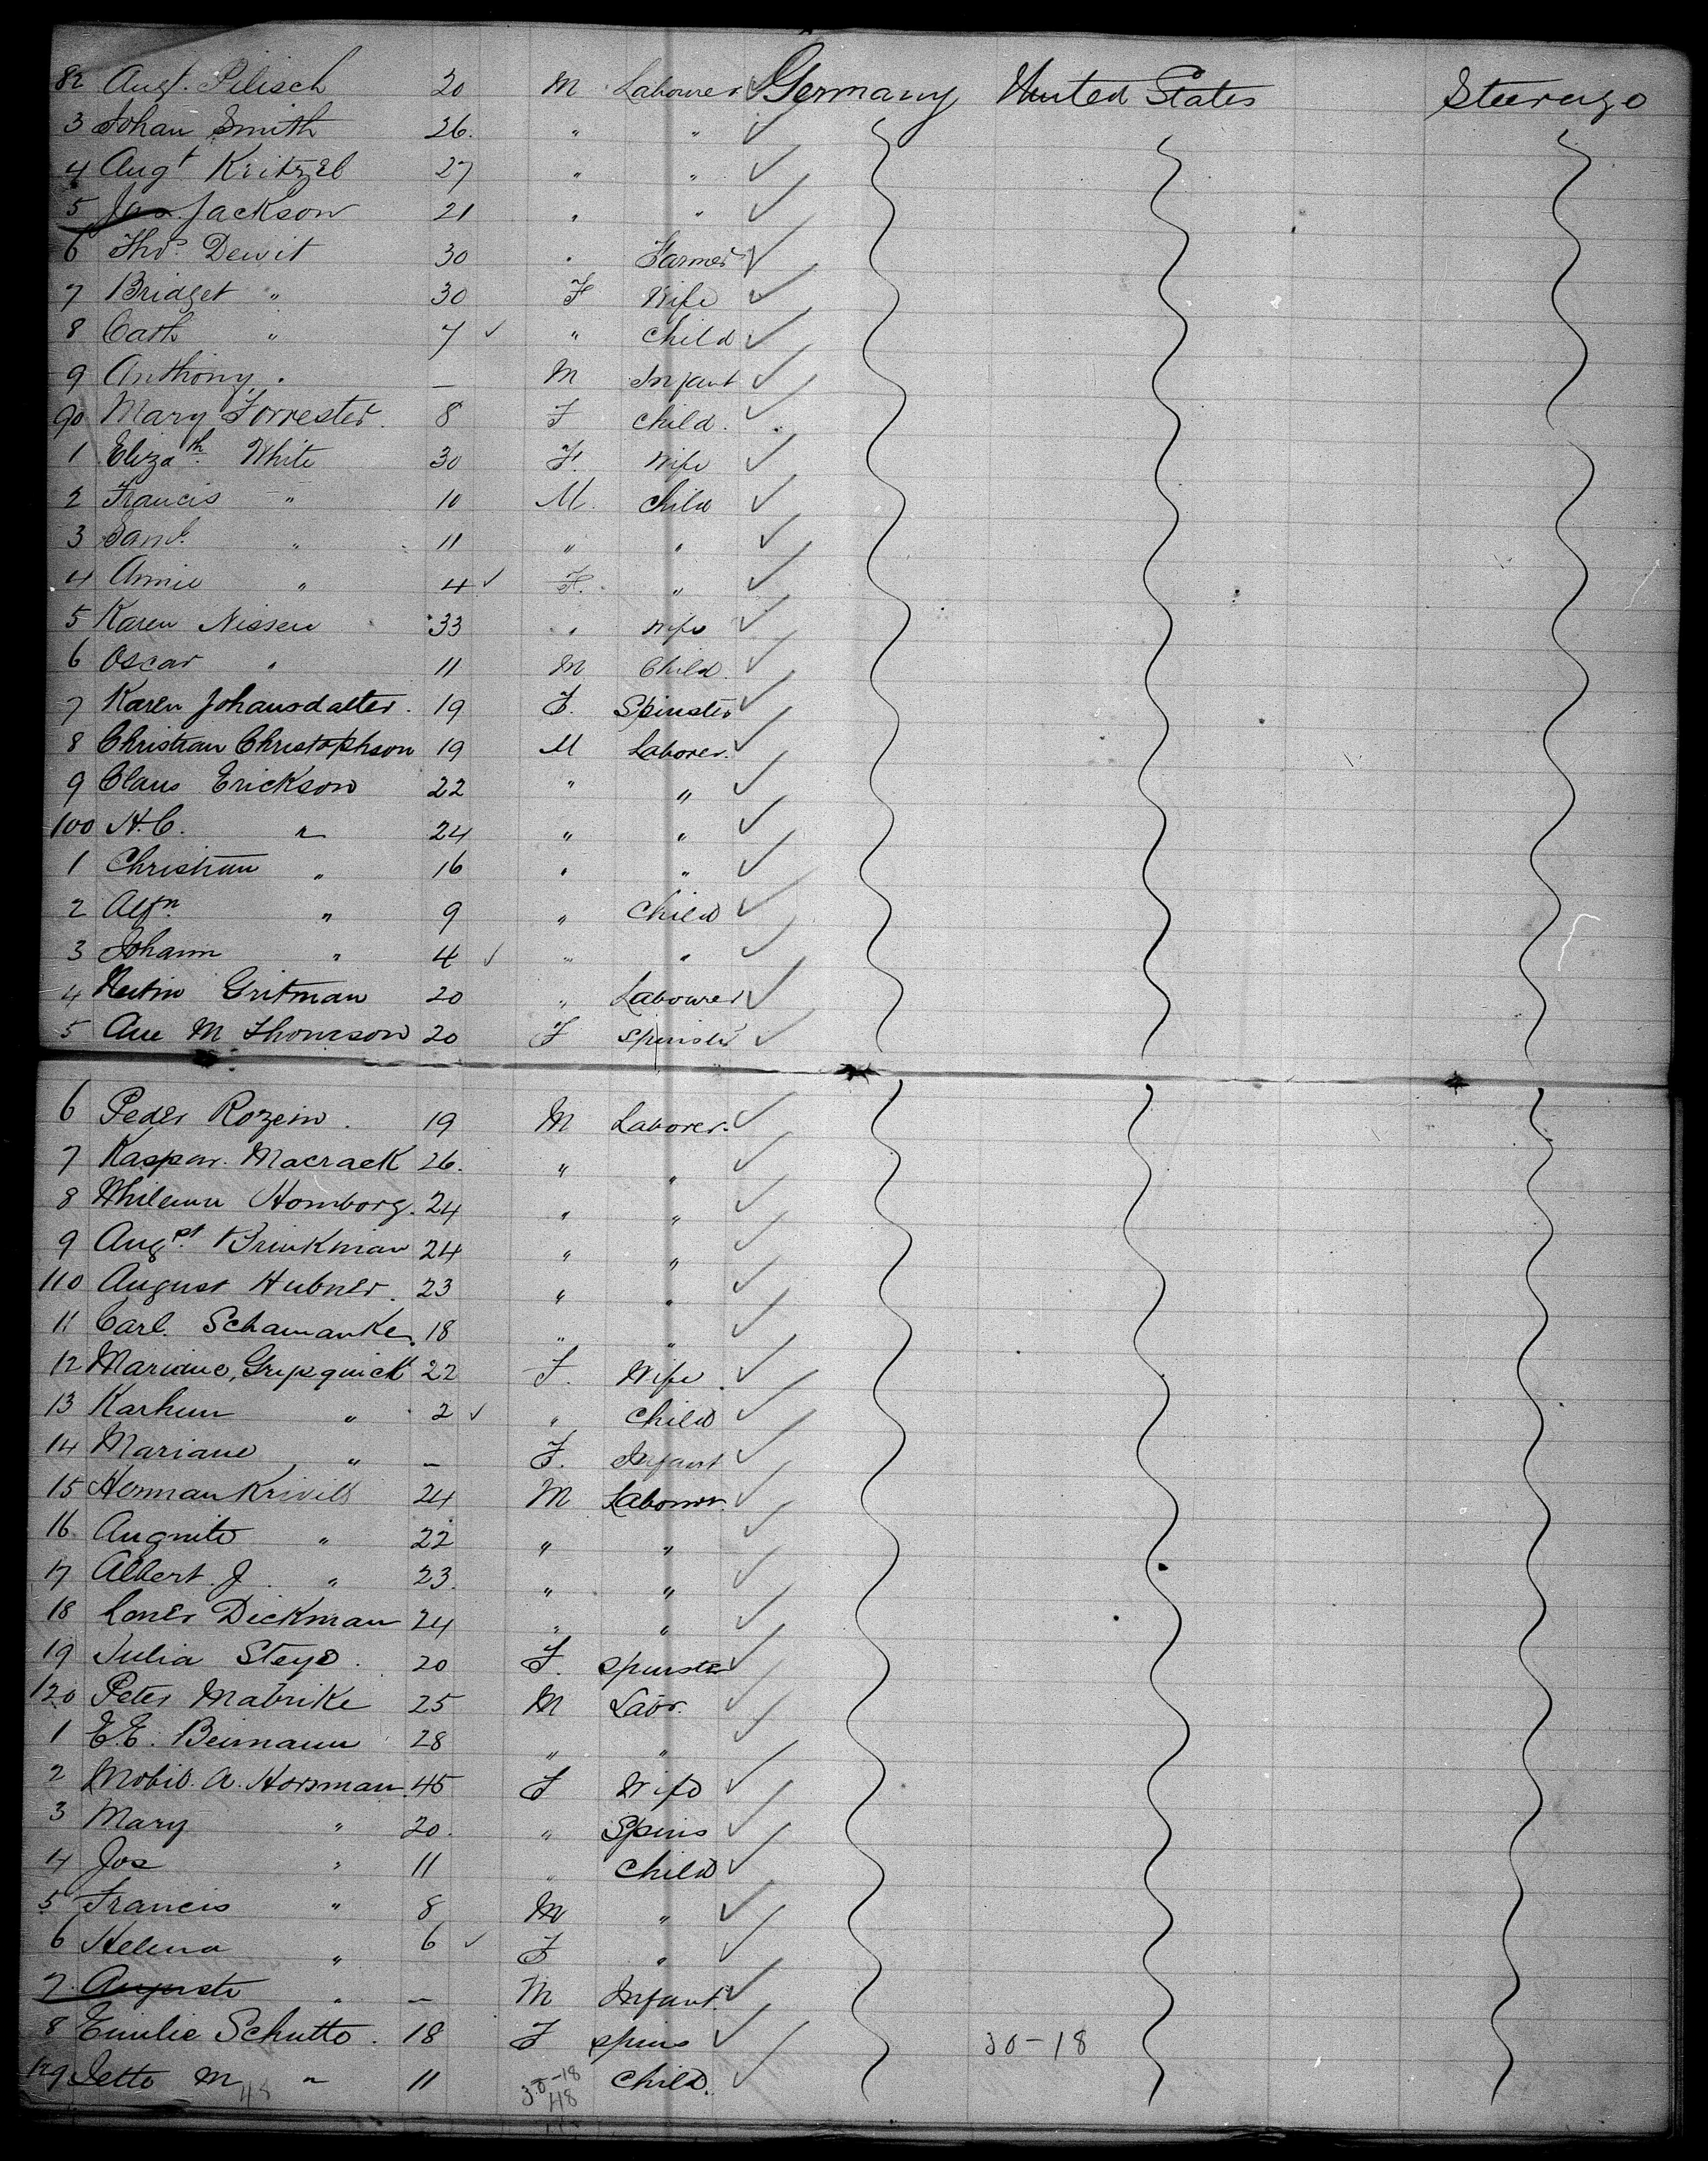 82 Augt. Pilisch 20 M Labourer ✓ Germany United States Steerage
3 Johan Smith 26. " " ✓
4 Augt Kritzel 27 " " ✓
5 Jas. Jackson 21 " " ✓
6 Thos. Dewit 30 " Farmer ✓
7 Bridget " 30 F Wife ✓
8 Cath " 7 ✓ " Child ✓
9 Anthony " — M Infant ✓
90 Mary Forrester. 8 F Child. ✓
1 Elizath. White 30 F. Wife ✓
2 Francis " 10 M. Child ✓
3 Saml. " 11 " " ✓
4 Annie " 4 ✓ F. " ✓
5 Karen Nissen 33 " Wife ✓
6 Oscar " 11 M Child. ✓
7 Karen Johansdatter. 19 F. Spinster ✓
8 Christian Christophson 19 M Laborer. ✓
9 Claus Erickson 22 " " ✓
100 H.C. " 24 " " ✓
1 Christian " 16 " " ✓
2 " 9 " Child ✓
3 Johann " 4 ✓ " " ✓
4 Gritman 20 " Labourer ✓
5 Ane M Thomson 20 F Spinster ✓
6 Peder Rozein. 19 M Laborer. ✓
7 Kaspar. Macrack 26. " " ✓
8 Homborg. 24 " " ✓
9 Augst. Brinkman 24 " " ✓
110 August Hubner. 23 " " ✓
11 Carl. Schamanke. 18 " " ✓
12 Mariane, 22 F. Wife. ✓
13 " 2 ✓ " Child ✓
14 Mariane " — F. Infant ✓
15 Herman 24 M Labourer. ✓
16 " 22 " " ✓
17 Albert. J. " 23. " " ✓
18 Dickman 24 " " ✓
19 Julia 20 F. Spinster ✓
120 Peter Mabrike 25 M Labr. ✓
1 E.E. Beimann 28 " " ✓
2 A. Horsman. 45 F Wife ✓
3 Mary " 20. " Spins ✓
4 Jos " 11 " Child ✓
5 Francis " 8 M " ✓
6 Helena " 6 ✓ F " ✓
7. Auguste " — M Infant. ✓
8 Emilie Schutte. 18 F Spins ✓ 30-18
129 Jette M " 11 Child. ✓
48 30-18
48